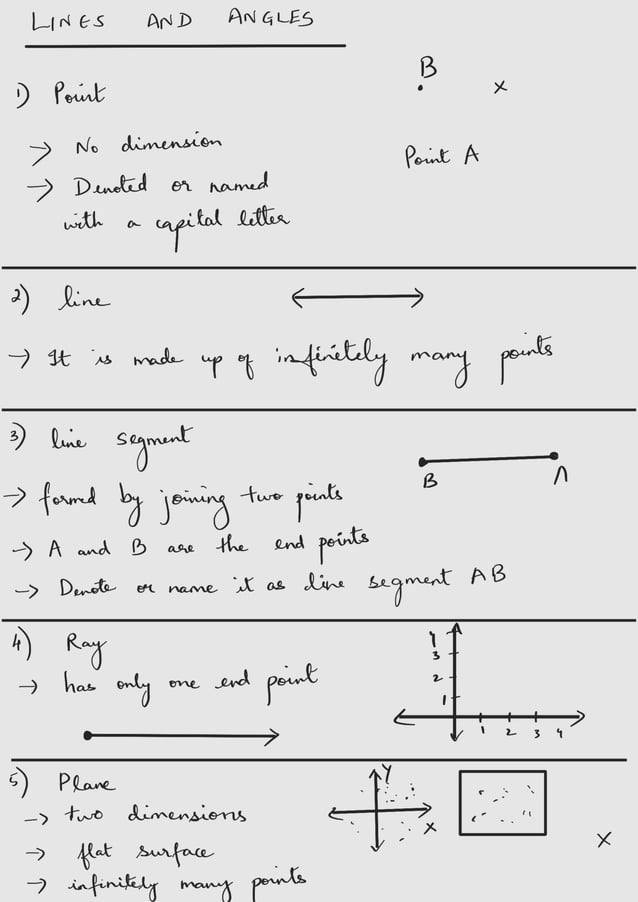 LINES AND ANGLES
1) Point
B
x
→ No dimension
Point A
→ Denoted or named
with a capital letter
2) line
→ It is made up of infinitely many points
3) line segment
B A
→ formed by joining two points
→ A and B are the end points
→ Denote or name it as line segment AB
4) Ray
→ has only one end point
4
3
2
1
1 2 3 4
5) Plane
Y
X
x
→ two dimensions
→ flat surface
→ infinitely many points